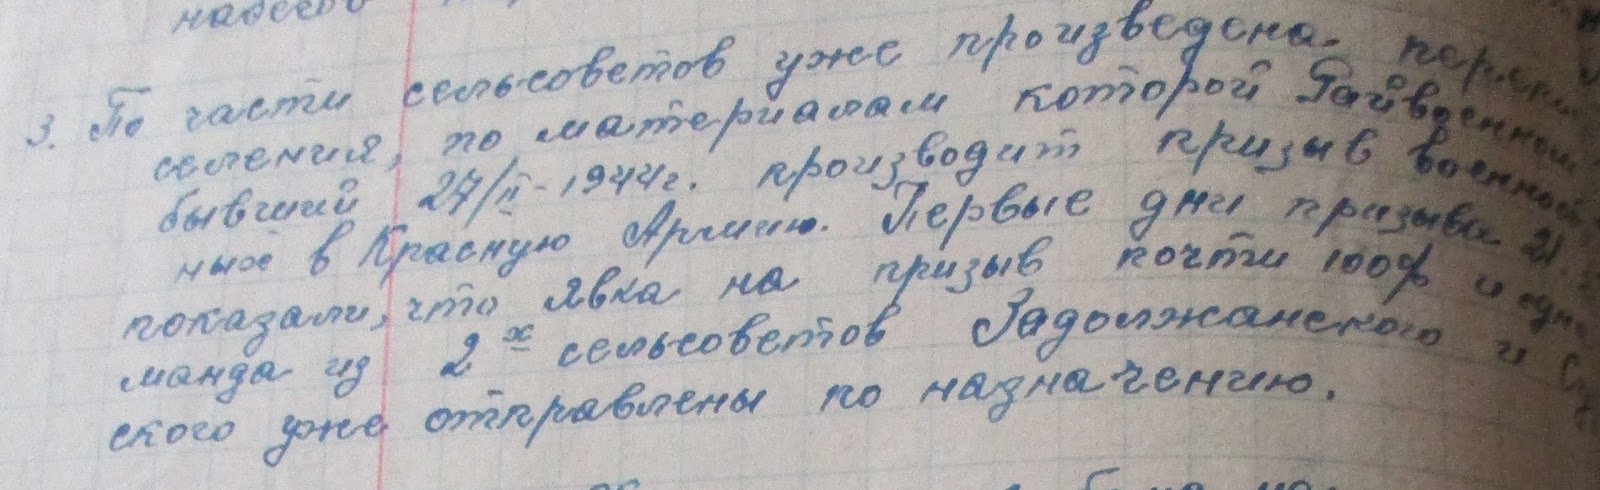 3. По части сельсоветов уже произведена
селения, по материалам которой Райвоенком
бывший 27/II-1944г. производит призыв
ных в Красную Армию. Первые дни призыва 21
показали, что явка на призыв почти 100% и
манда из 2х сельсоветов Задолжанского и
ского уже отправлены по назначению.